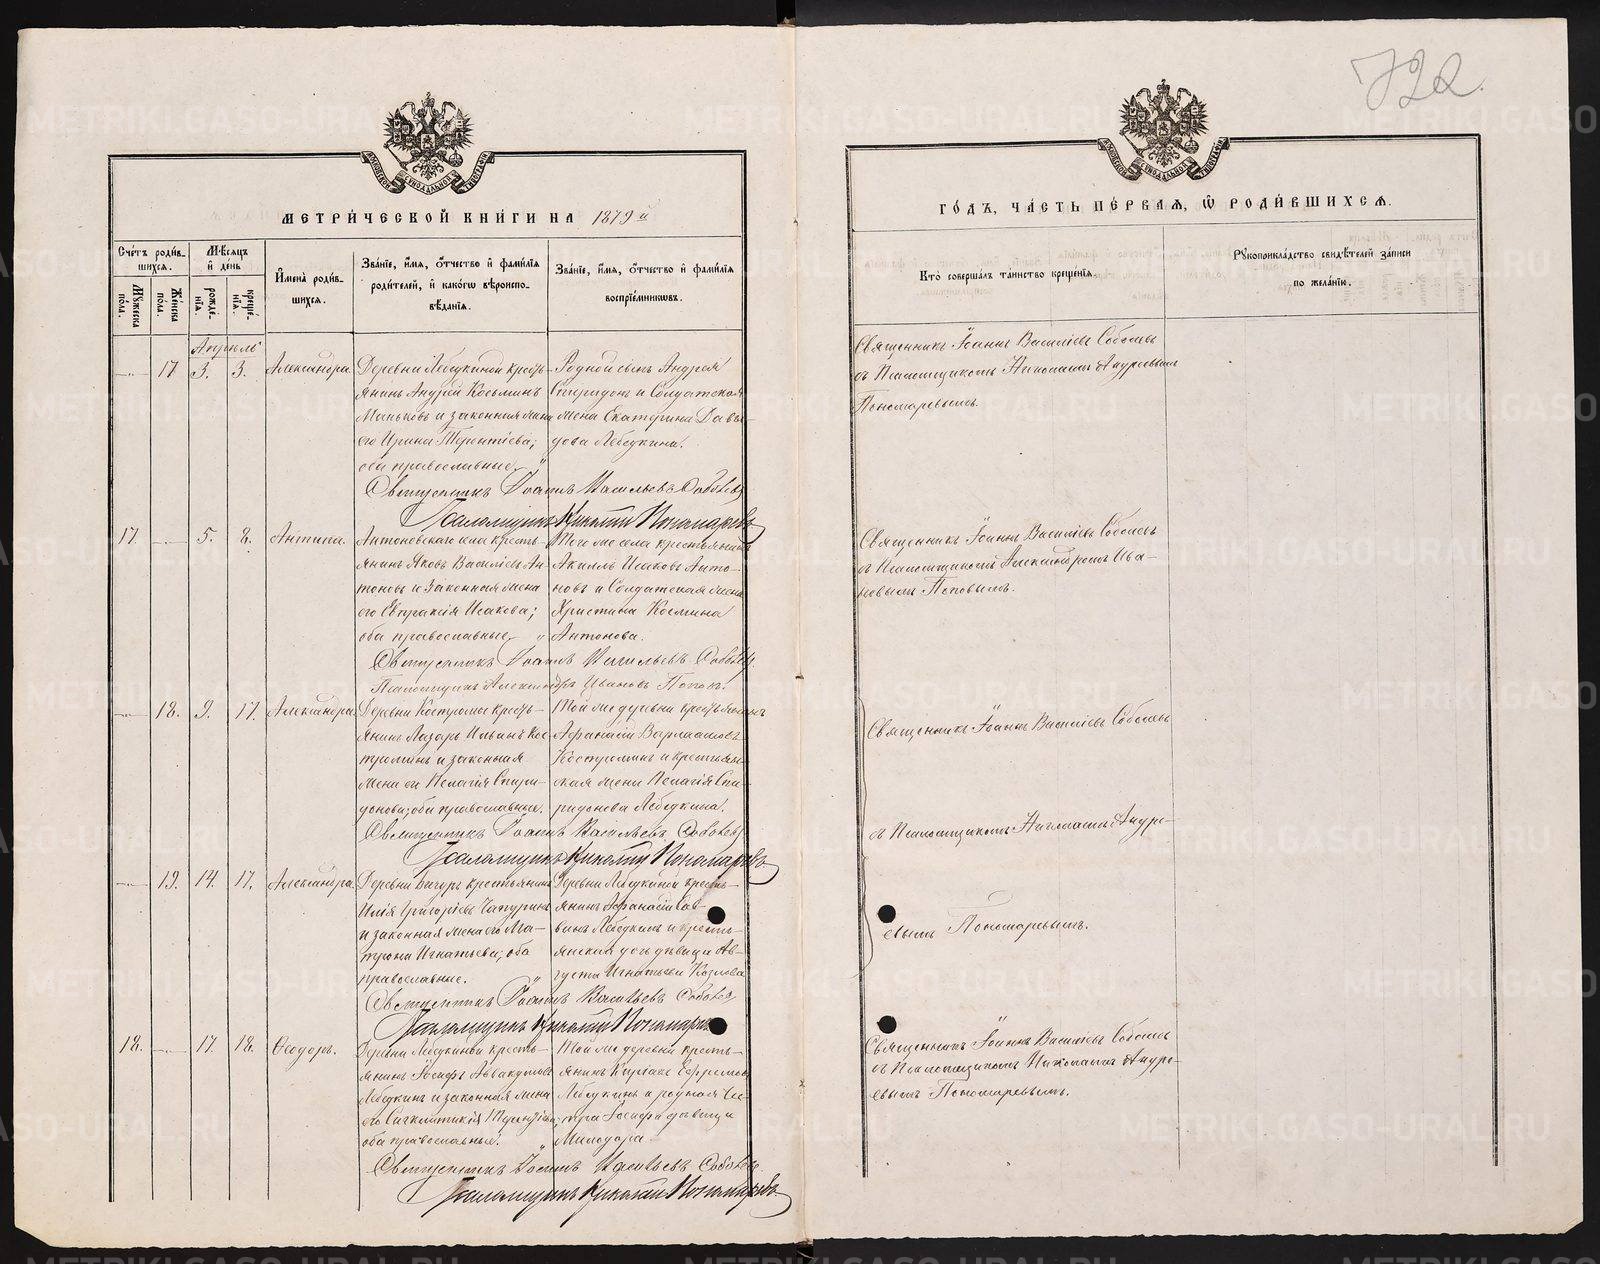 792
МЕТРИ́ЧЕСКОЙ КНИ́ГИ НА 1879 й
Сче́тъ роди́в-
шихся.
Мѣ́сяцъ
и̂ де́нь
Му́жеска
по́ла.
Же́нска
по́ла.
рожде́-
нїя.
креще́-
нїя.
И̂мена̀ роди́в-
шихся.
Зва́нїе, и̂́мя, ѻ̂́тчество и̂ фами́лїя
роди́телей, и̂ како́гѡ вѣроиспо-
вѣ́данїя.
Зва́нїе, и̂́мя, ѻ̂́тчество и̂ фами́лїя
воспрїе́мникѡвъ.
Апрѣль
17 3. 3. Александра
Деревни Лебедкиной кресть-
янинъ Андрей Косьминъ
Маньковъ и законная жена
его Ирина Терентіева;
оба православные.
Родной сынъ Андрея
Спиридонъ и Солдатская
жена Екатерина Давы-
дова Лебедкина.
Священникъ Іоаннъ Васильевъ Соболевъ
Псаломщикъ Николай Пономаревъ
17. 5. 8. Антипа.
Антоновскаго села кресть-
янинъ Яковъ Василіевъ Ан-
тоновъ и Законная жена
его Евпраксія Исакова;
оба православные.
Того же села крестьянинъ
Акилла Исаковъ Анто-
новъ и Солдатская жена
Христина Космина
Антонова.
Священникъ Іоаннъ Васильевъ Соболевъ
Псаломщикъ Александръ Ивановъ Поповъ.
18. 9. 17. Александра
Деревни Костромы кресть-
янинъ Лазарь Ильинъ Кос-
троминъ и законная
жена его Пелагія Спири-
донова; оба православные.
Той же деревни крестьянинъ
Афанасій Варлаамовъ
Костроминъ и крестьян-
ская жена Пелагія Спи-
ридонова Лебедкина.
Священникъ Іоаннъ Васильевъ Соболевъ
Псаломщикъ Николай Пономаревъ
19. 14. 17. Александра
Деревни крестьянинъ
Илія Григоріевъ Чапуринъ
и законная жена его Ма-
трона Игнатьева; оба
православные.
Деревни Лебедкиной кресть-
янинъ Афанасій Сав-
винъ Лебедкинъ и кресть-
янская дочь дѣвица Ав-
густа Игнатьева Козлова
Священникъ Іоаннъ Васильевъ Соболевъ
Псаломщикъ Николай Пономаревъ
18. 17. 18. Ѳеодоръ.
Деревни Лебедкиной кресть-
янинъ Іосифъ Аввакумовъ
Лебедкинъ и законная жена
его Сигклитикія Терентіева;
оба православные.
Той же деревни кресть-
янинъ Киріакъ Ефремовъ
Лебедкинъ и родная сес-
тра Іосифа дѣвица
Милодора
Священникъ Іоаннъ Васильевъ Соболевъ
Псаломщикъ Николай Пономаревъ
ГО́ДЪ, ЧА́СТЬ ПЕ́РВАЯ, Ѡ̂ РОДИ́ВШИХСЯ.
Кто̀ соверша́лъ та́инство креще́нїя.
Рꙋкоприкла́дство свидѣ́телей за́писи
по жела́нїю.
Священникъ Іоаннъ Василіевъ Соболевъ
съ Псаломщикомъ Николаемъ Андреевымъ
Пономаревымъ.
Священникъ Іоаннъ Василіевъ Соболевъ
съ Псаломщикомъ Александромъ Ива-
новымъ Поповымъ.
Священникъ Іоаннъ Василіевъ Соболевъ
съ Псаломщикомъ Николаемъ Андре-
евымъ Пономаревымъ.
Священникъ Іоаннъ Василіевъ Соболевъ
съ Псаломщикомъ Николаемъ Андре-
евымъ Пономаревымъ.
METRIKI.GASO-URAL.RU